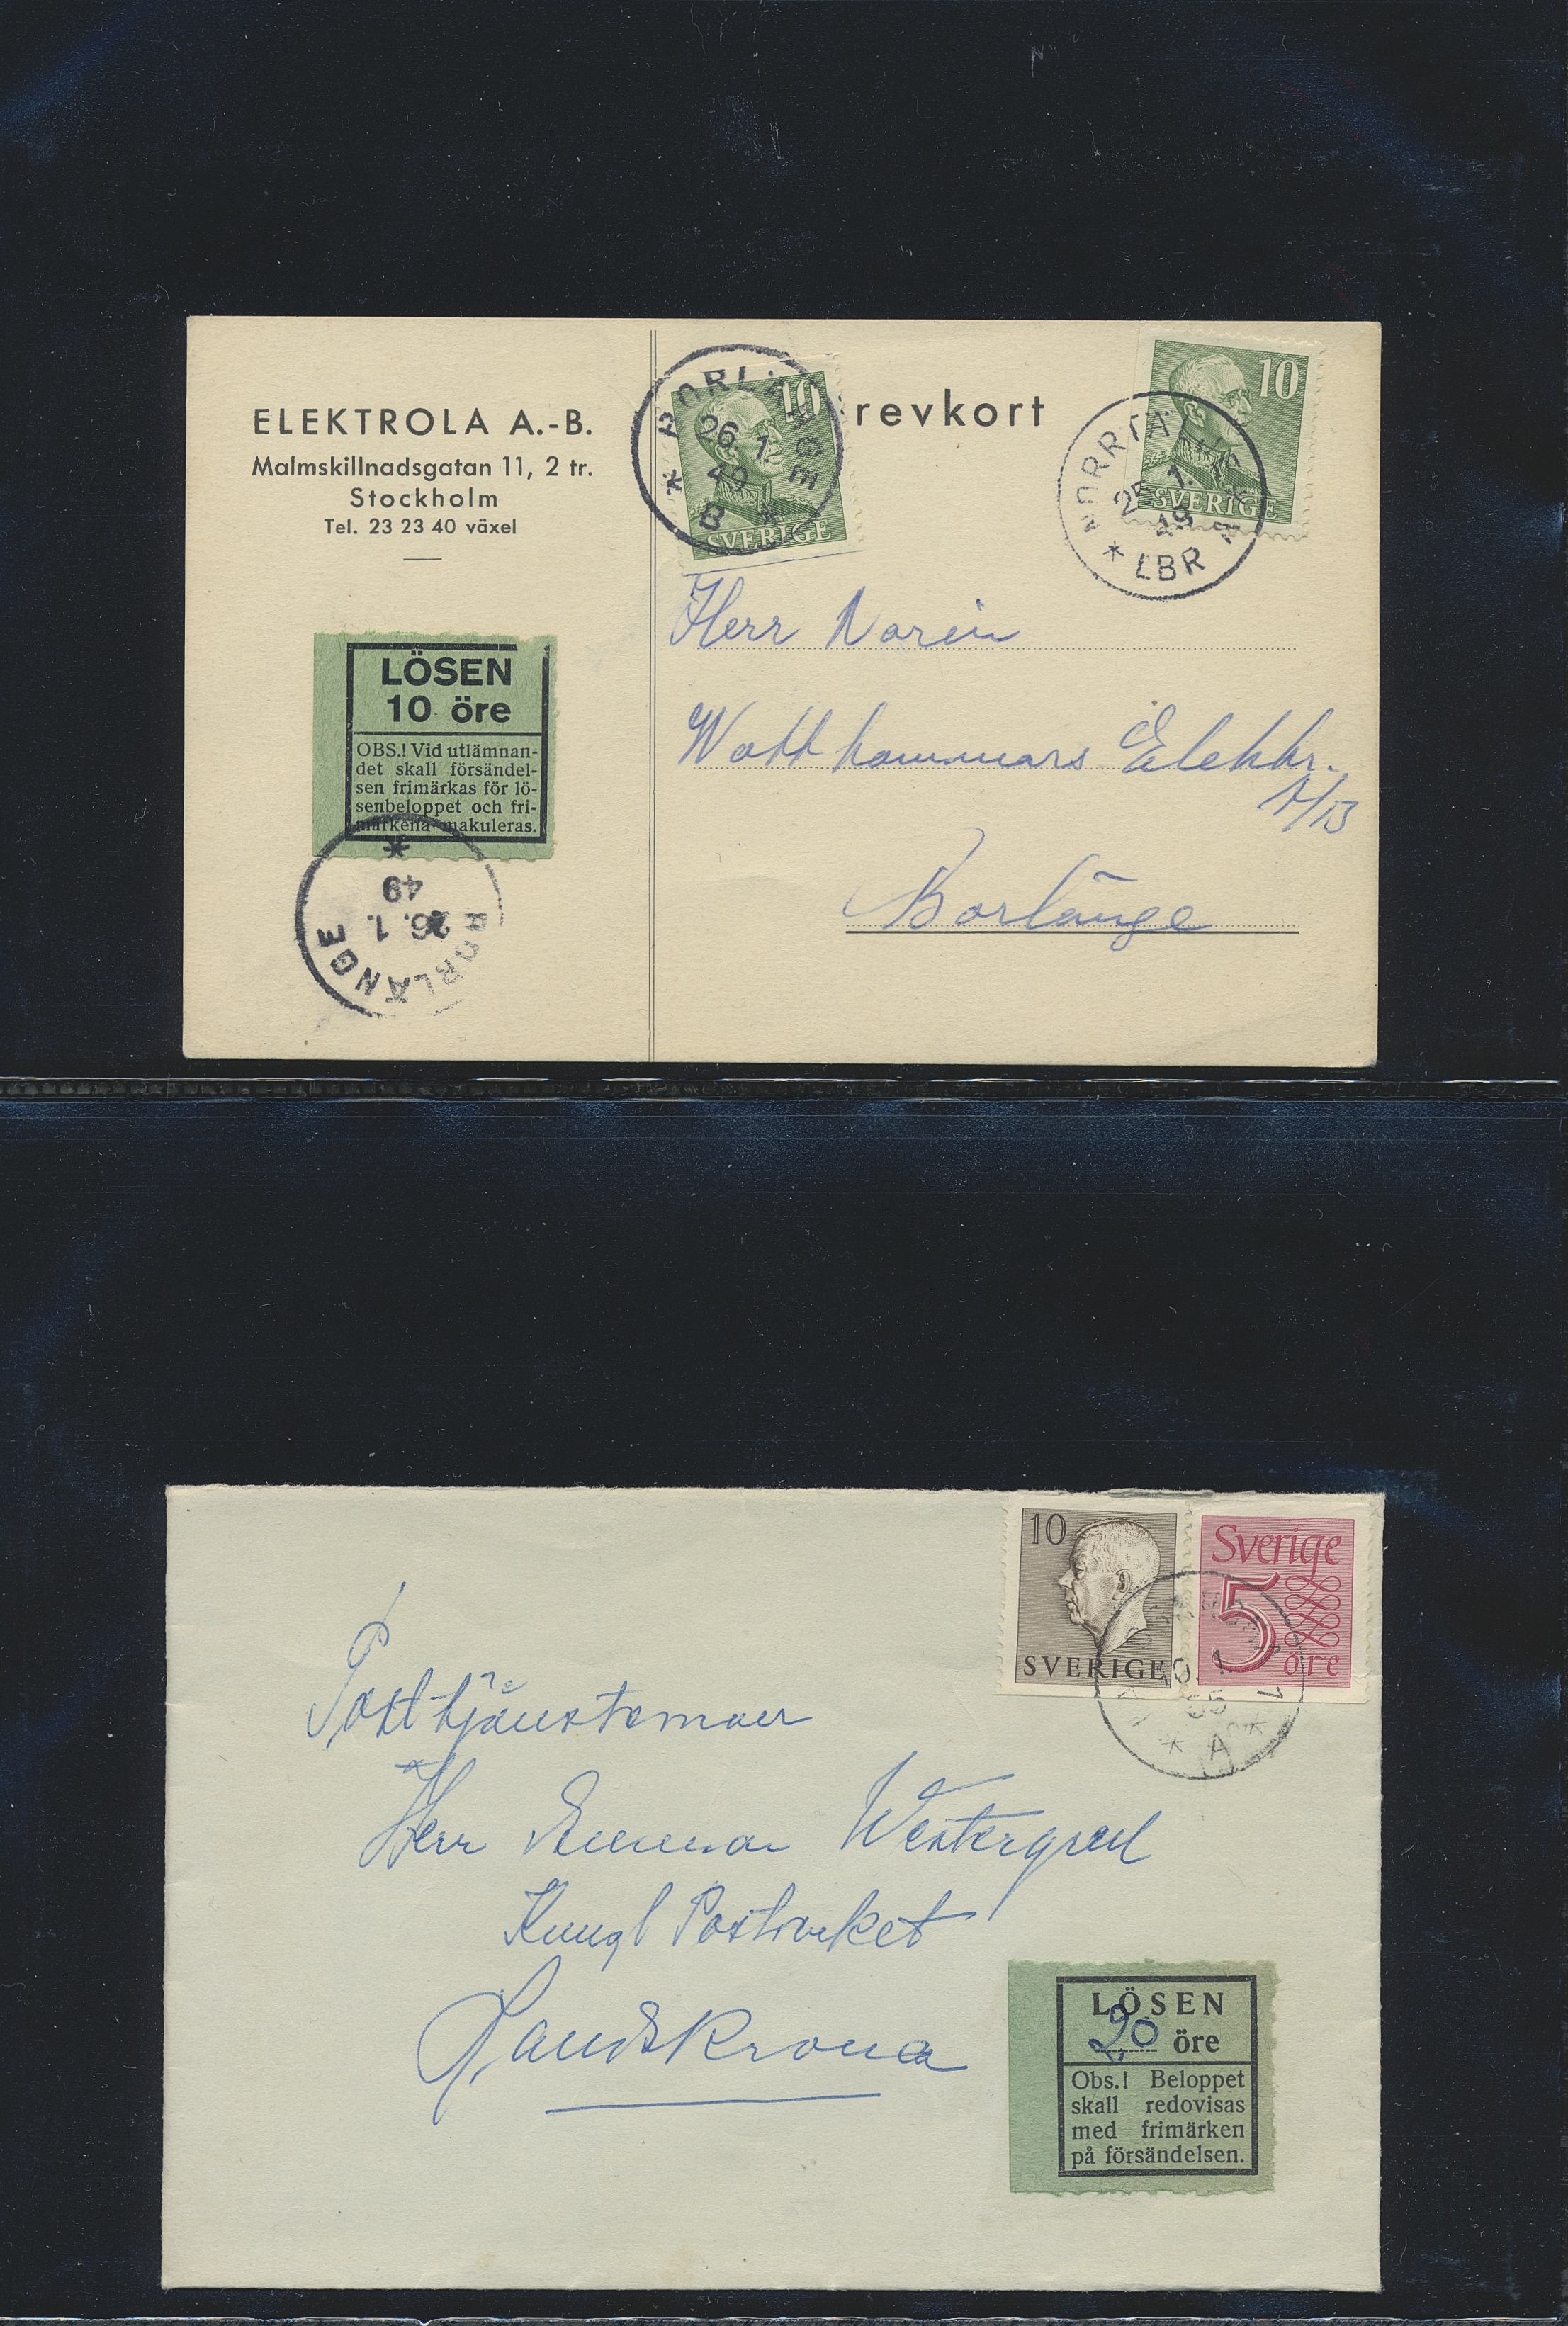 ELEKTROLA A.-B.
Malmskillnadsgatan 11, 2 tr.
Stockholm
Tel. 23 23 40 växel
LÖSEN
10 öre
OBS.! Vid utlämnan-
det skall försändel-
sen frimärkas för lö-
senbeloppet och fri-
märkena makuleras.
BORLÄNGE
26. 1.
49
10
SVERIGE
BORLÄNGE
26. 1.
49
B
revkort
10
SVERIGE
1.
49
LBR
Herr Norén
Elektr.
A/B
Borlänge
10
SVERIGE
Sverige
5
öre
55
A
Posttjänsteman
Herr Westergren
Kungl Postverket
Landskrona
LÖSEN
20 öre
Obs.! Beloppet
skall redovisas
med frimärken
på försändelsen.